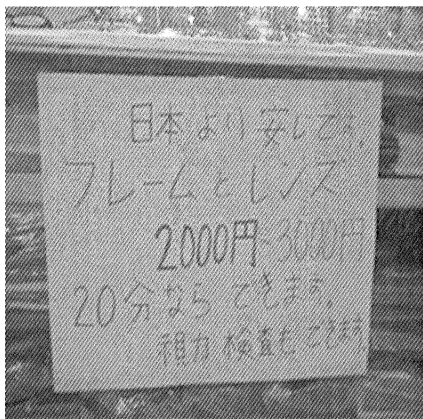 日本より安いです。
フレームとレンズ
2000円~3000円
20分ならできます。
視力検査もできます